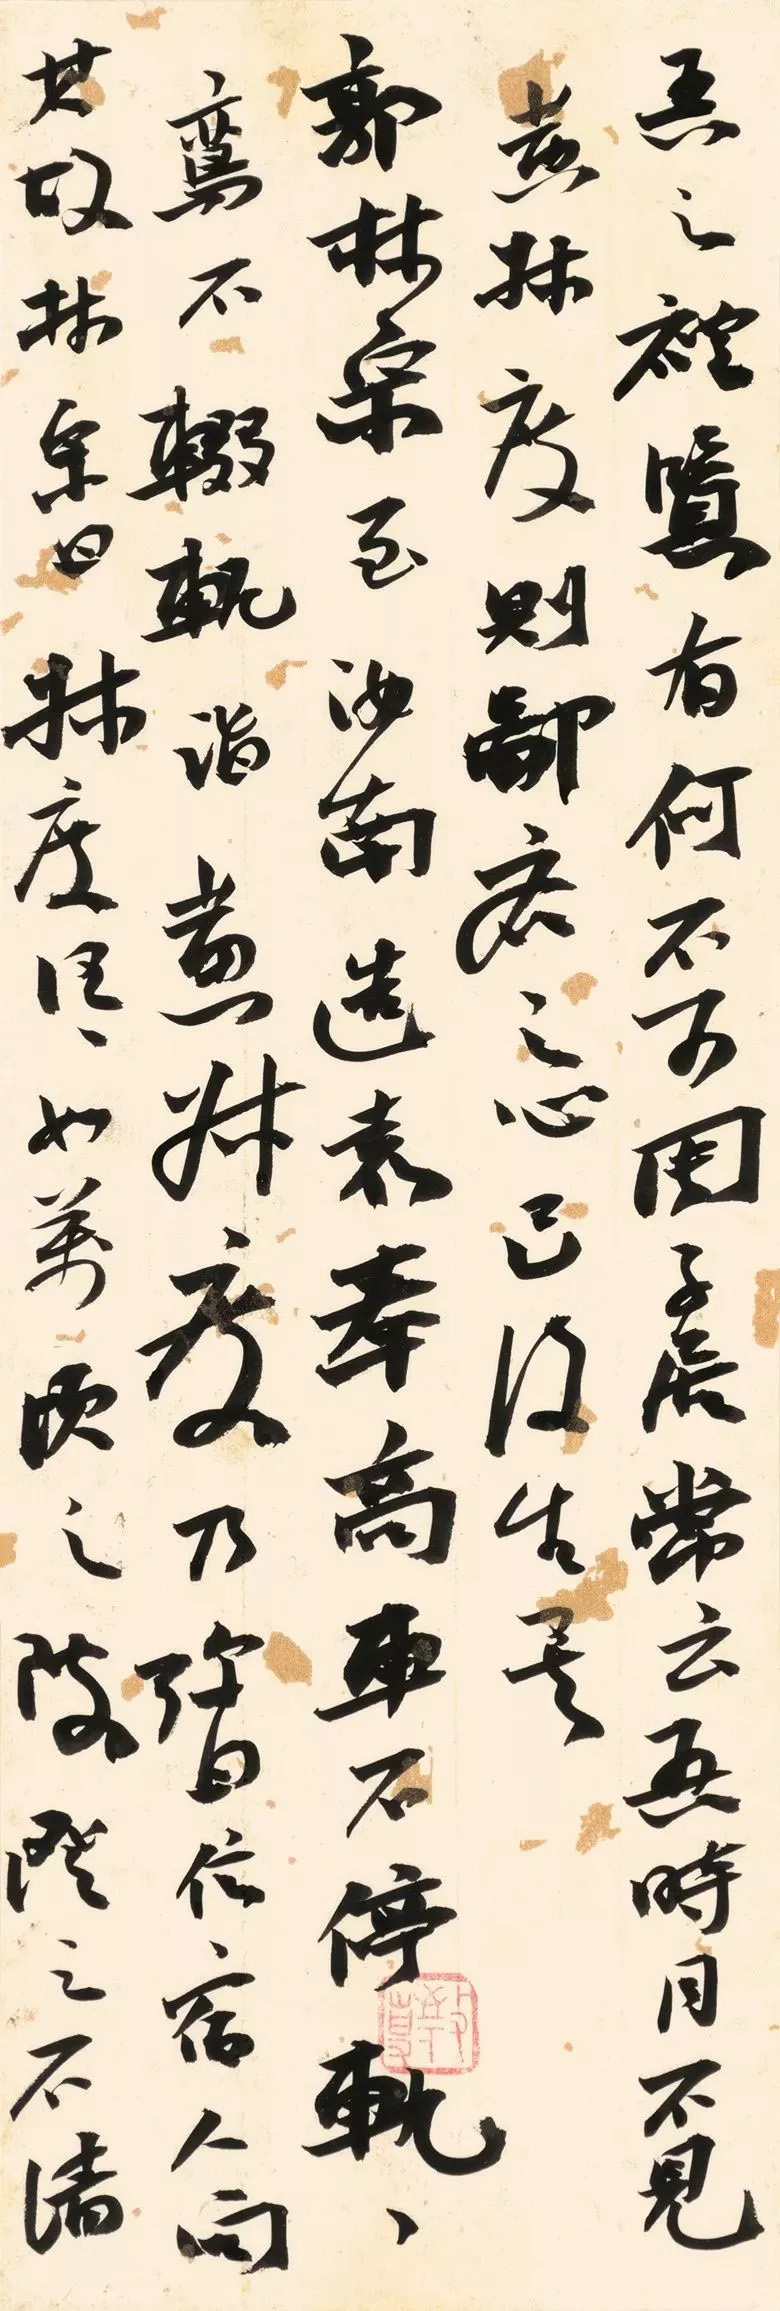 吾之禆覽有何不可用子居常云吾時月不見
黃叔度則鄙吝之心已復生矣
郭林宗至汝南造袁奉高車不停軌、
鸞不輟軏詣黃叔度乃彌日信宿人問
其故林宗曰叔度汪、如萬頃之陂澄之不清